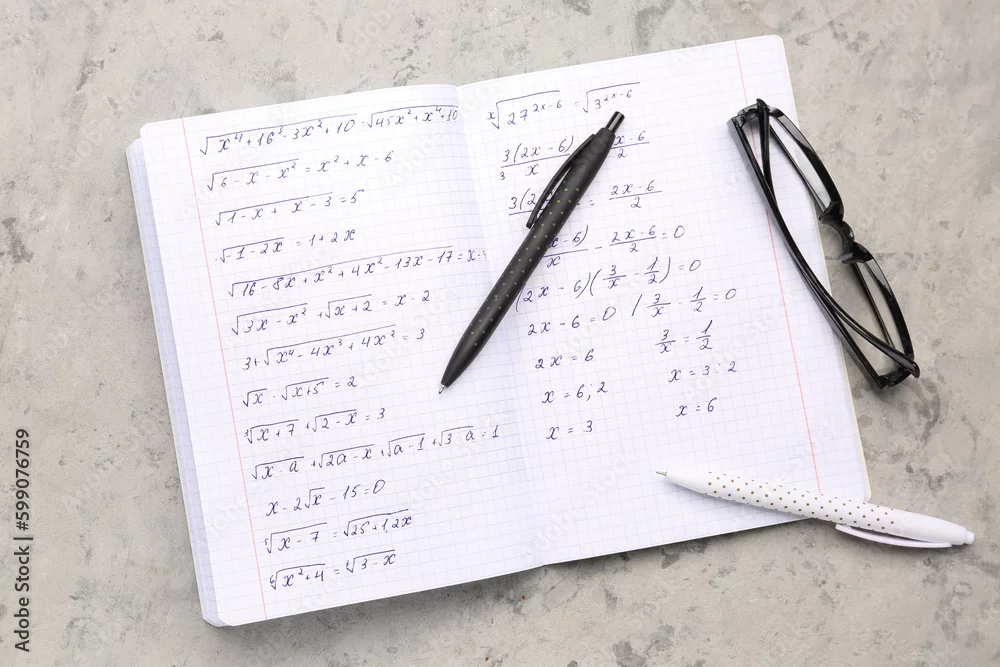 √(x⁴+16³-3x²+10) = √(45x²+x⁴+10)
√(6-x-x²) = x²+x-6
√(1-x+x-3) = 5
√(-1-2x) = 1+2x
√(16-8x+x²+4x²-13x-17) = x-
√(3x-x²) + √(x+2) = x-2
3+√(x⁴-4x³+4x²) = 3
√x · √(x+5) = 2
³√(x+7) + √(2-x) = 3
√(x-a) + √(2a-x) + √(a-1) + √(3-a) = 1
x-2√x-15=0
√(x-7) = √(25+1,2x)
⁶√(x²+4) = √(3-x)
ˣ√(27^(2x-6)) = √(3^(2x-6))
3(2x-6)/x x-6/2
3
3(2 = 2x-6/2
x-6)/x - 2x-6/2 = 0
(2x-6)(3/x - 1/2) = 0
2x-6=0 / 3/x - 1/2 = 0
2x = 6 3/x = 1/2
x = 6:2 x = 3·2
x = 3 x = 6
Adobe Stock | #599076759